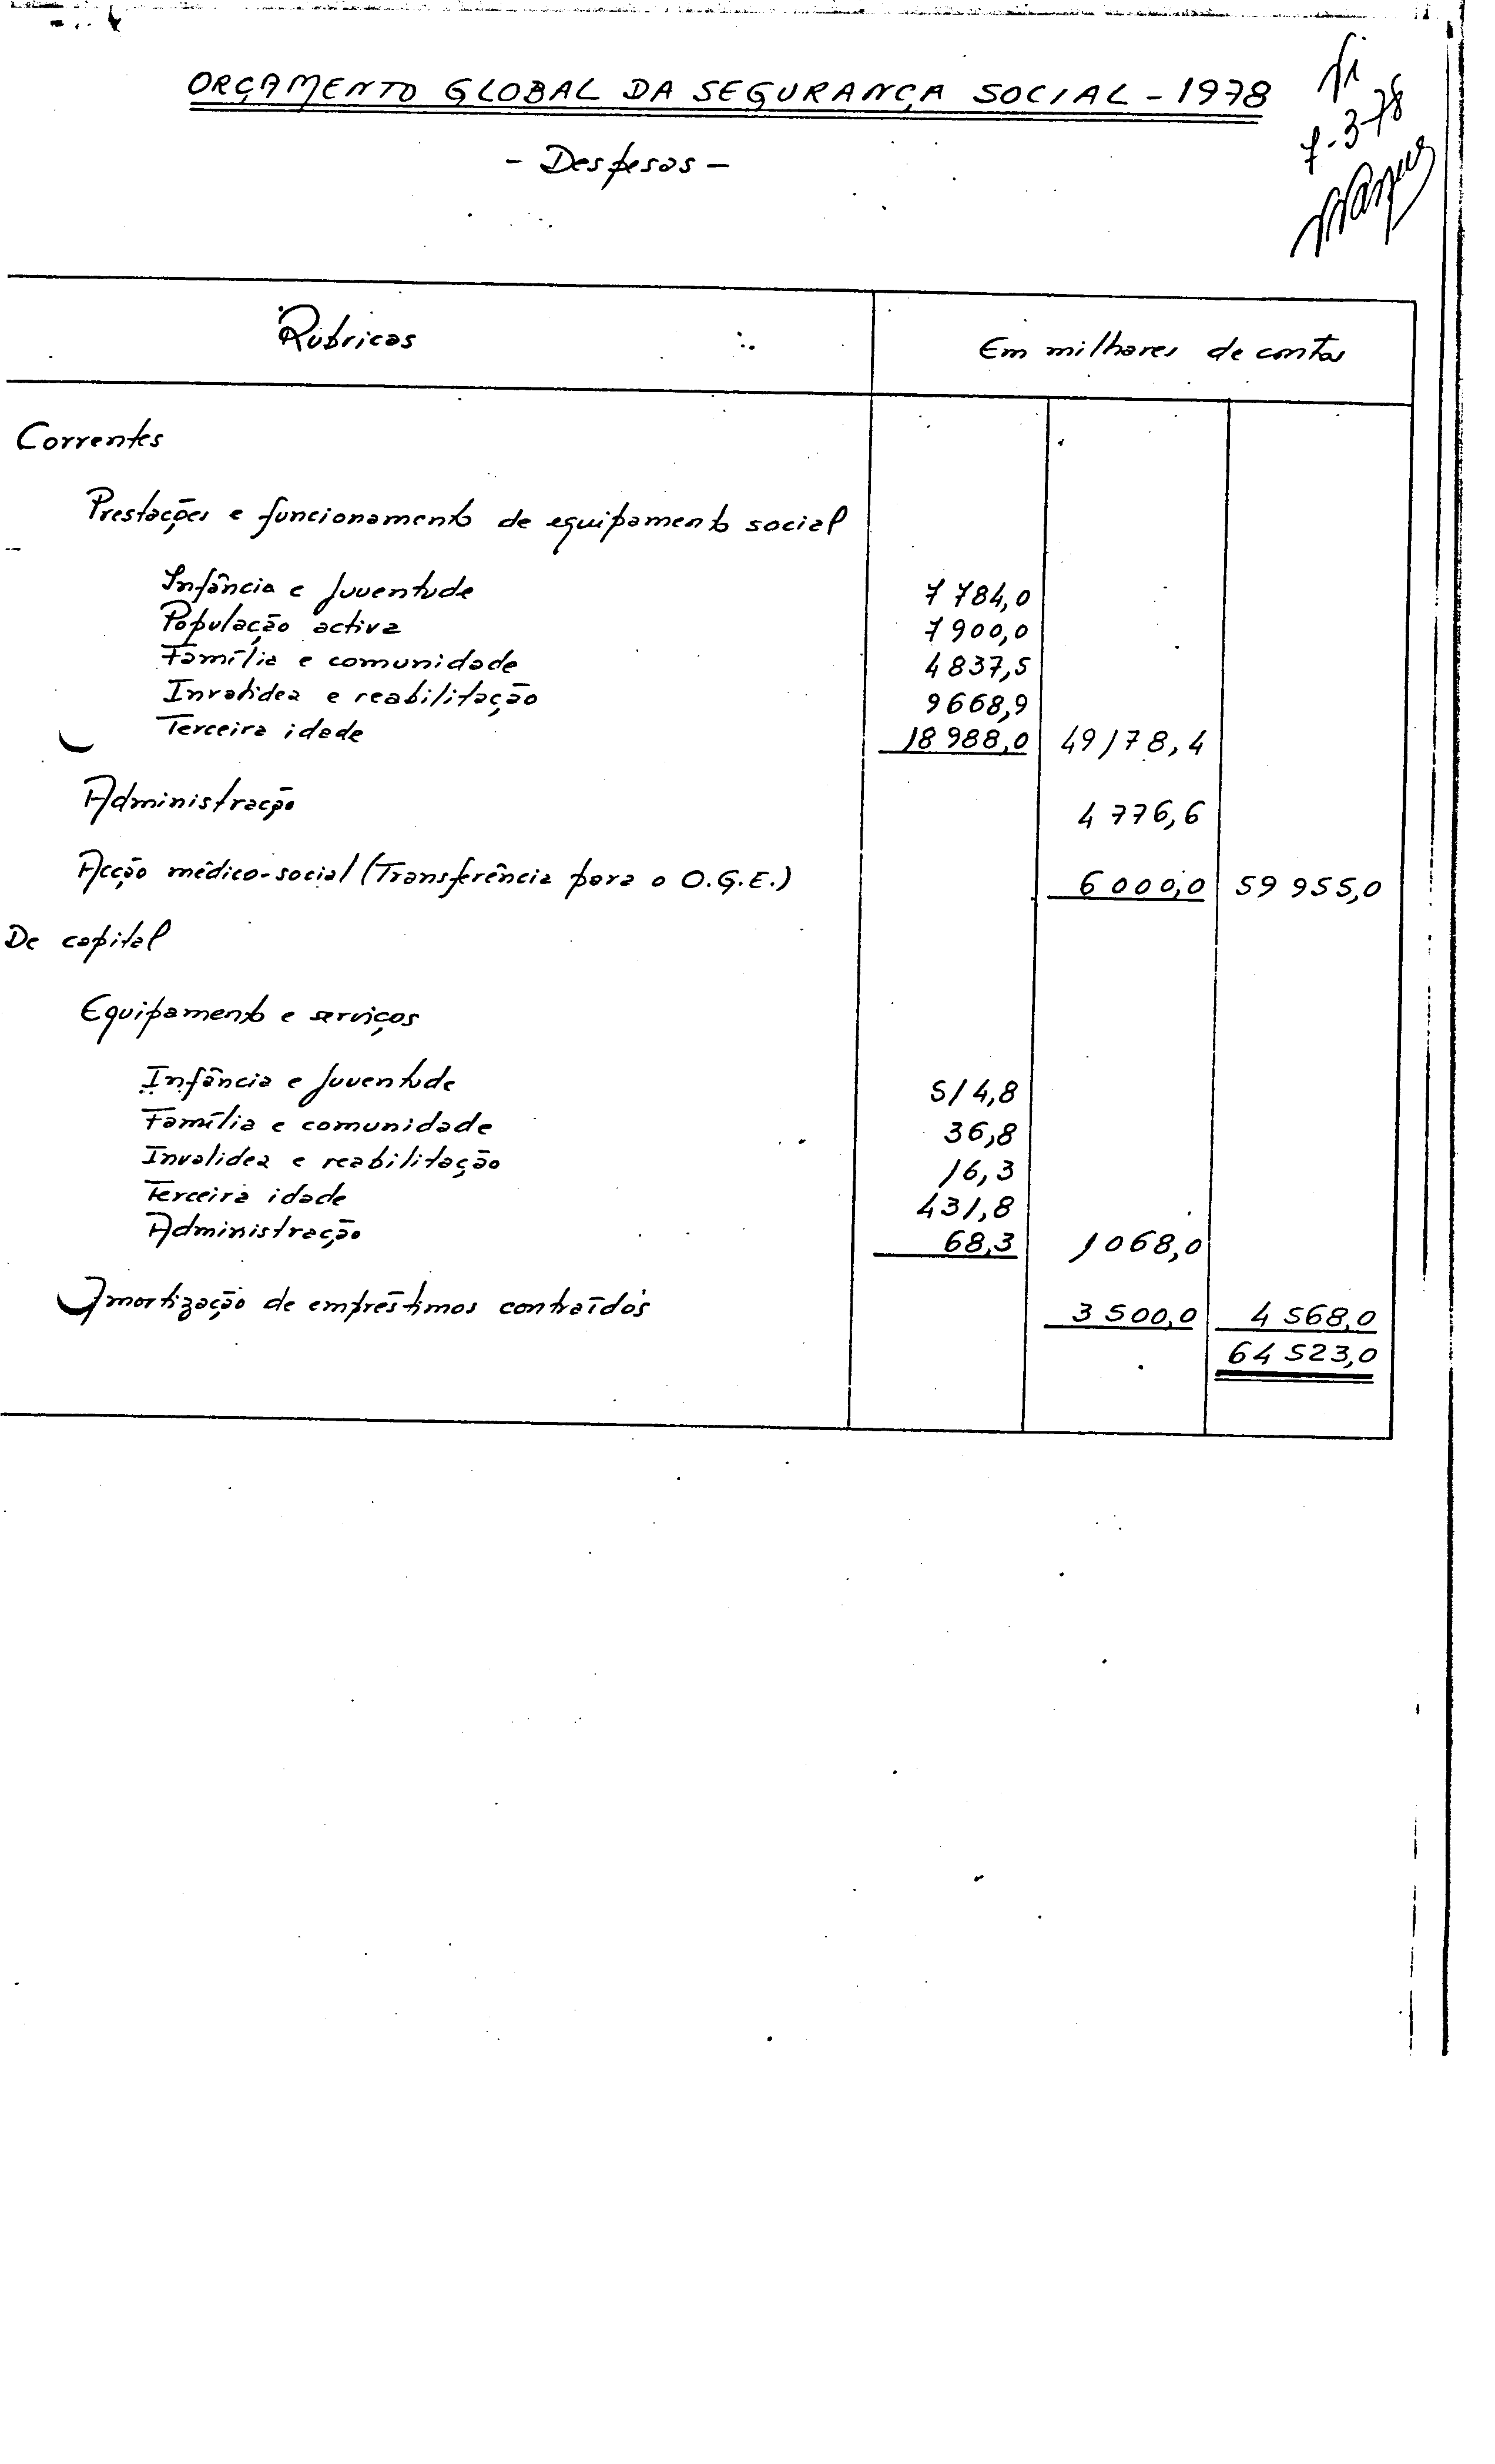 ORÇAMENTO GLOBAL DA SEGURANÇA SOCIAL - 1978
7-3-78
- Despesas -
Rúbricas Em milhares de contos
Correntes
Prestações e funcionamento de equipamento social
Infância e Juventude 7 784,0
População activa 7 900,0
Família e comunidade 4 837,5
Invalidez e reabilitação 9 668,9
Terceira idade 18 988,0 49 178,4
Administração 4 776,6
Acção médico-social (Transferência para o O.G.E.) 6 000,0 59 955,0
De capital
Equipamento e serviços
Infância e Juventude 514,8
Família e comunidade 36,8
Invalidez e reabilitação 16,3
Terceira idade 431,8
Administração 68,3 1 068,0
Amortização de empréstimos contraídos 3 500,0 4 568,0
64 523,0